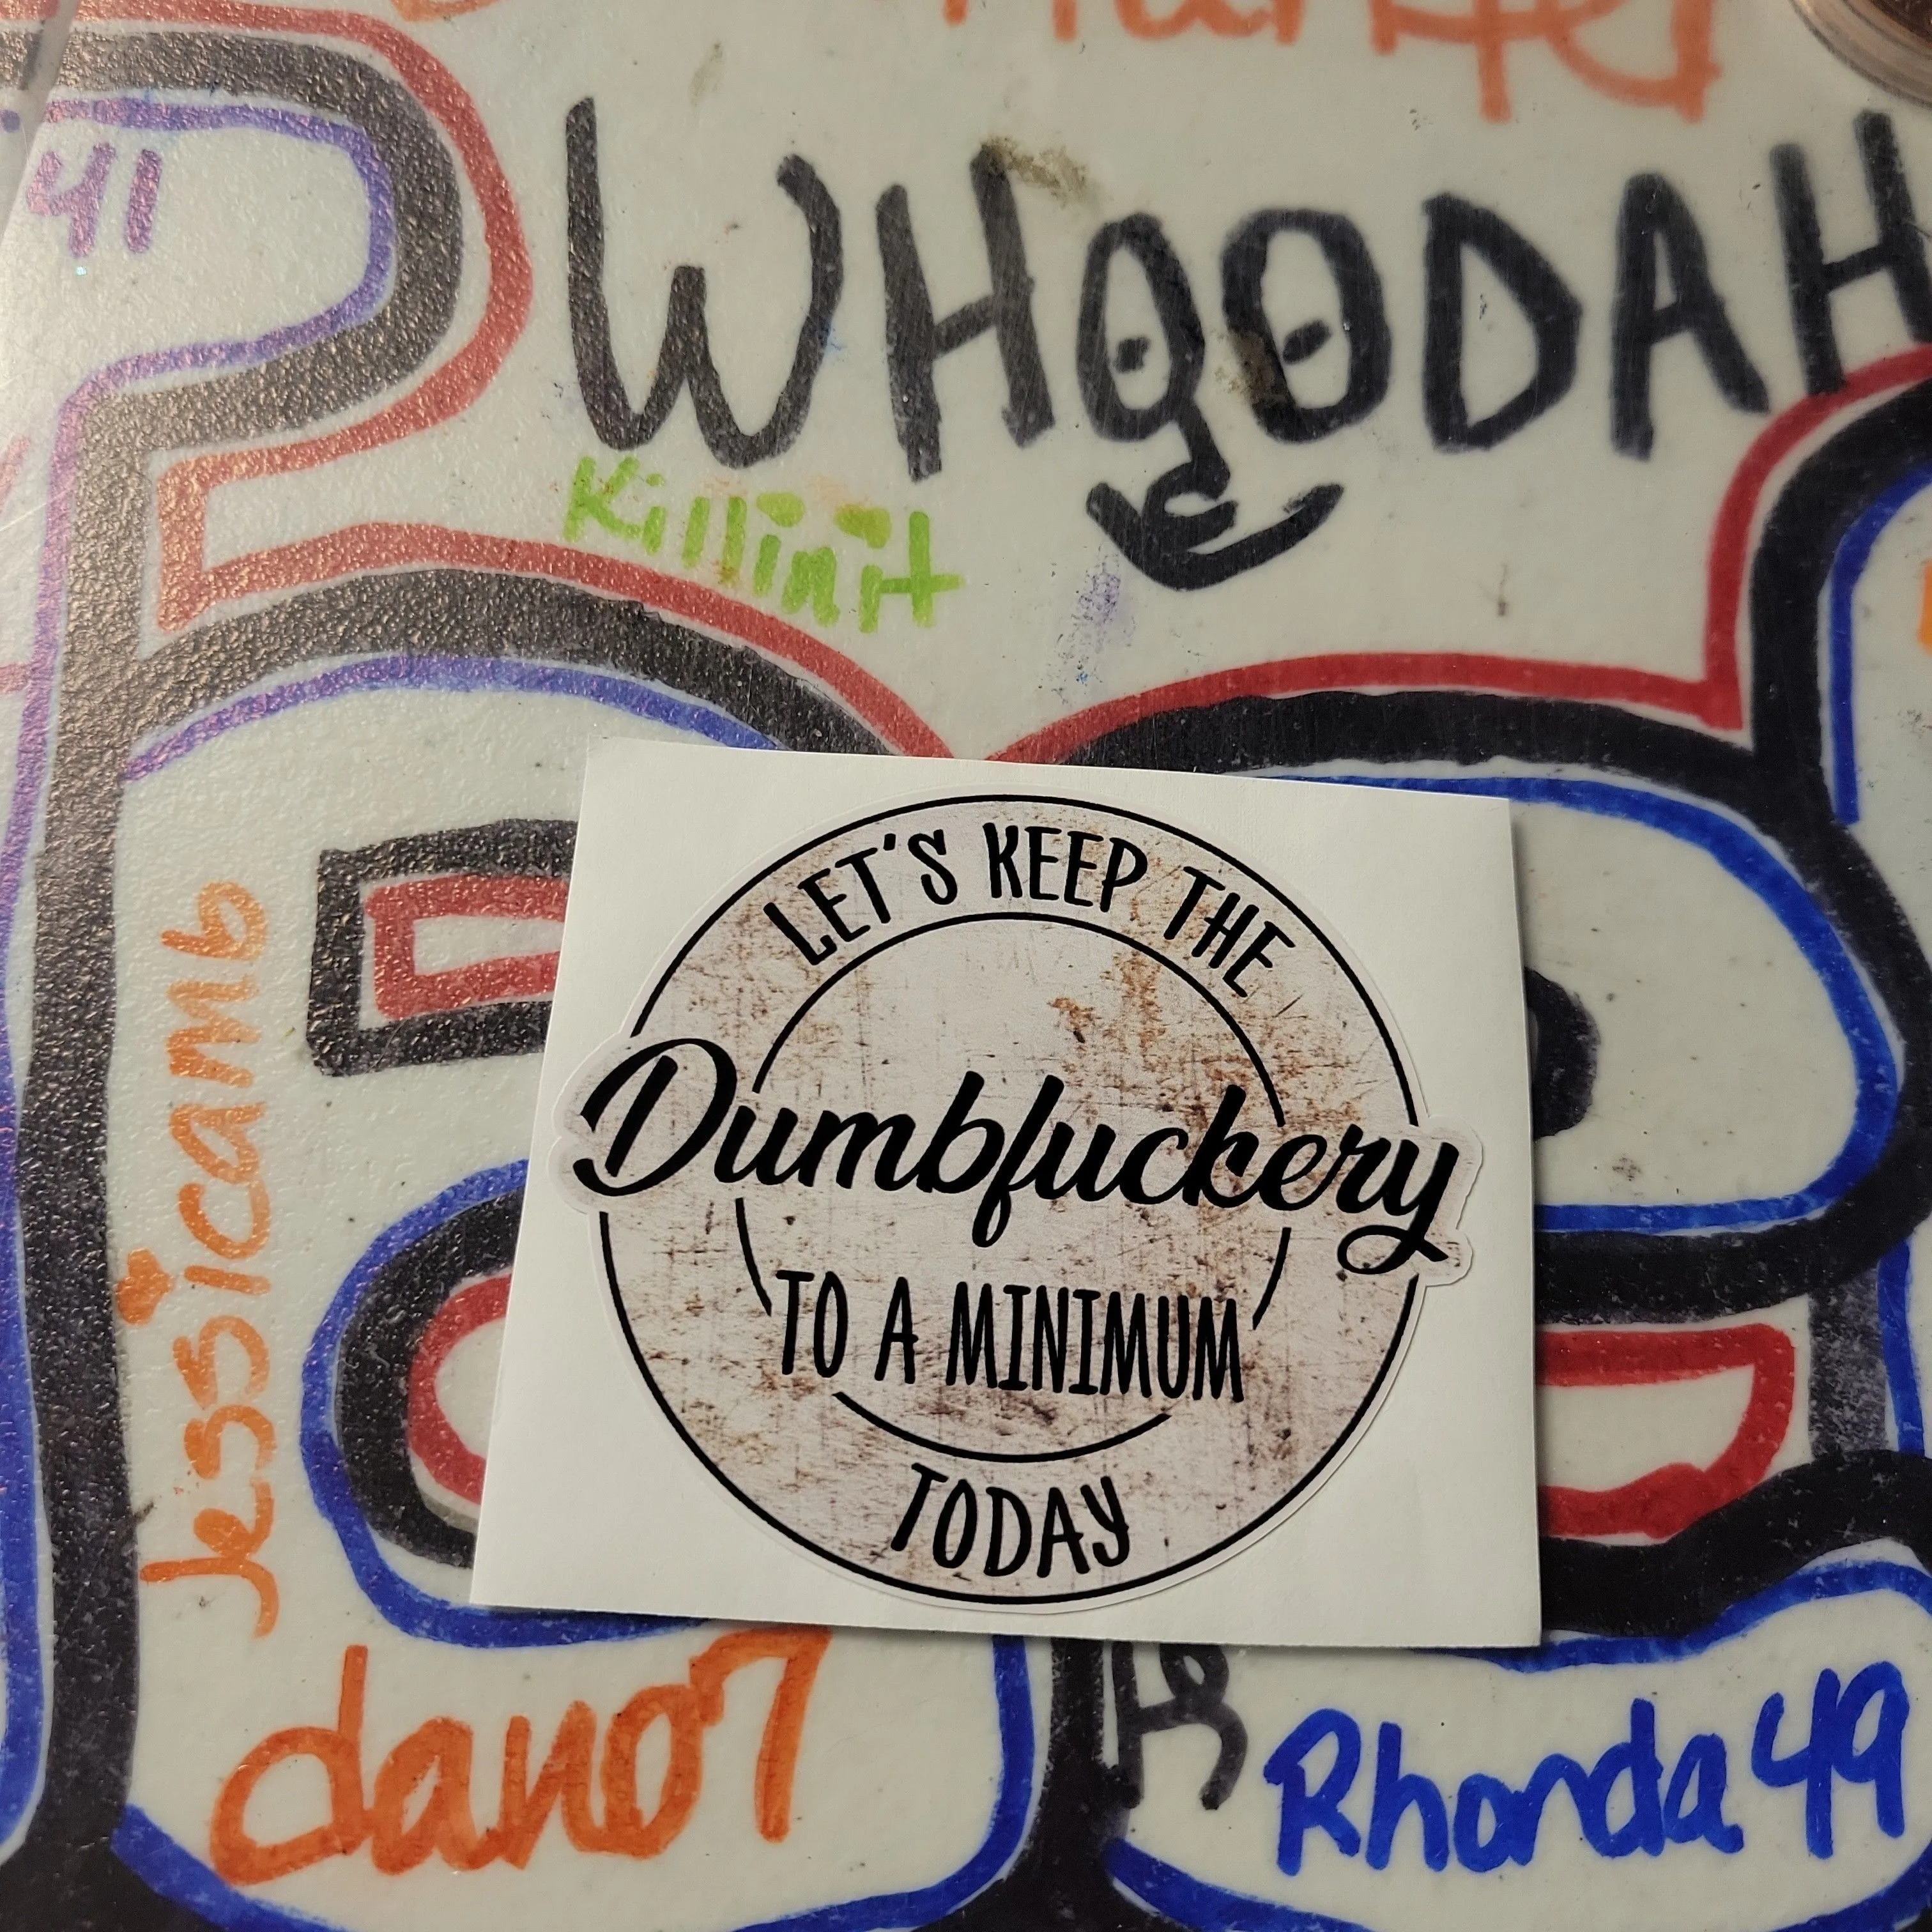 41
WHOODAH
Killinit
LET'S KEEP THE
Dumbfuckery
TO A MINIMUM
TODAY
Jessicamb
dano7
Rhonda49